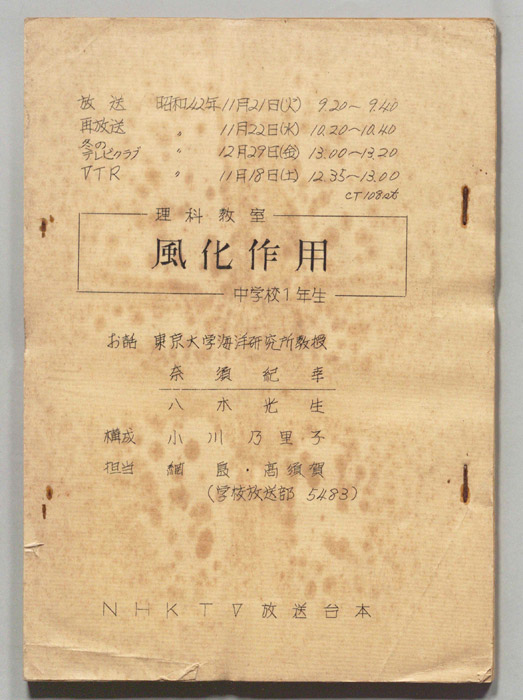 放送 昭和42年11月21日(火) 9.20〜9.40
再放送 〃 11月22日(水) 10.20〜10.40
冬のテレビクラブ 〃 12月29日(金) 13.00〜13.20
VTR 〃 11月18日(土) 12.35〜13.00
CT108
理科教室
風化作用
中学校1年生
お話 東京大学海洋研究所教授
奈須紀幸
八木光生
構成 小川乃里子
担当 細島・高須賀
(学校放送部 5483)
NHKTV放送台本